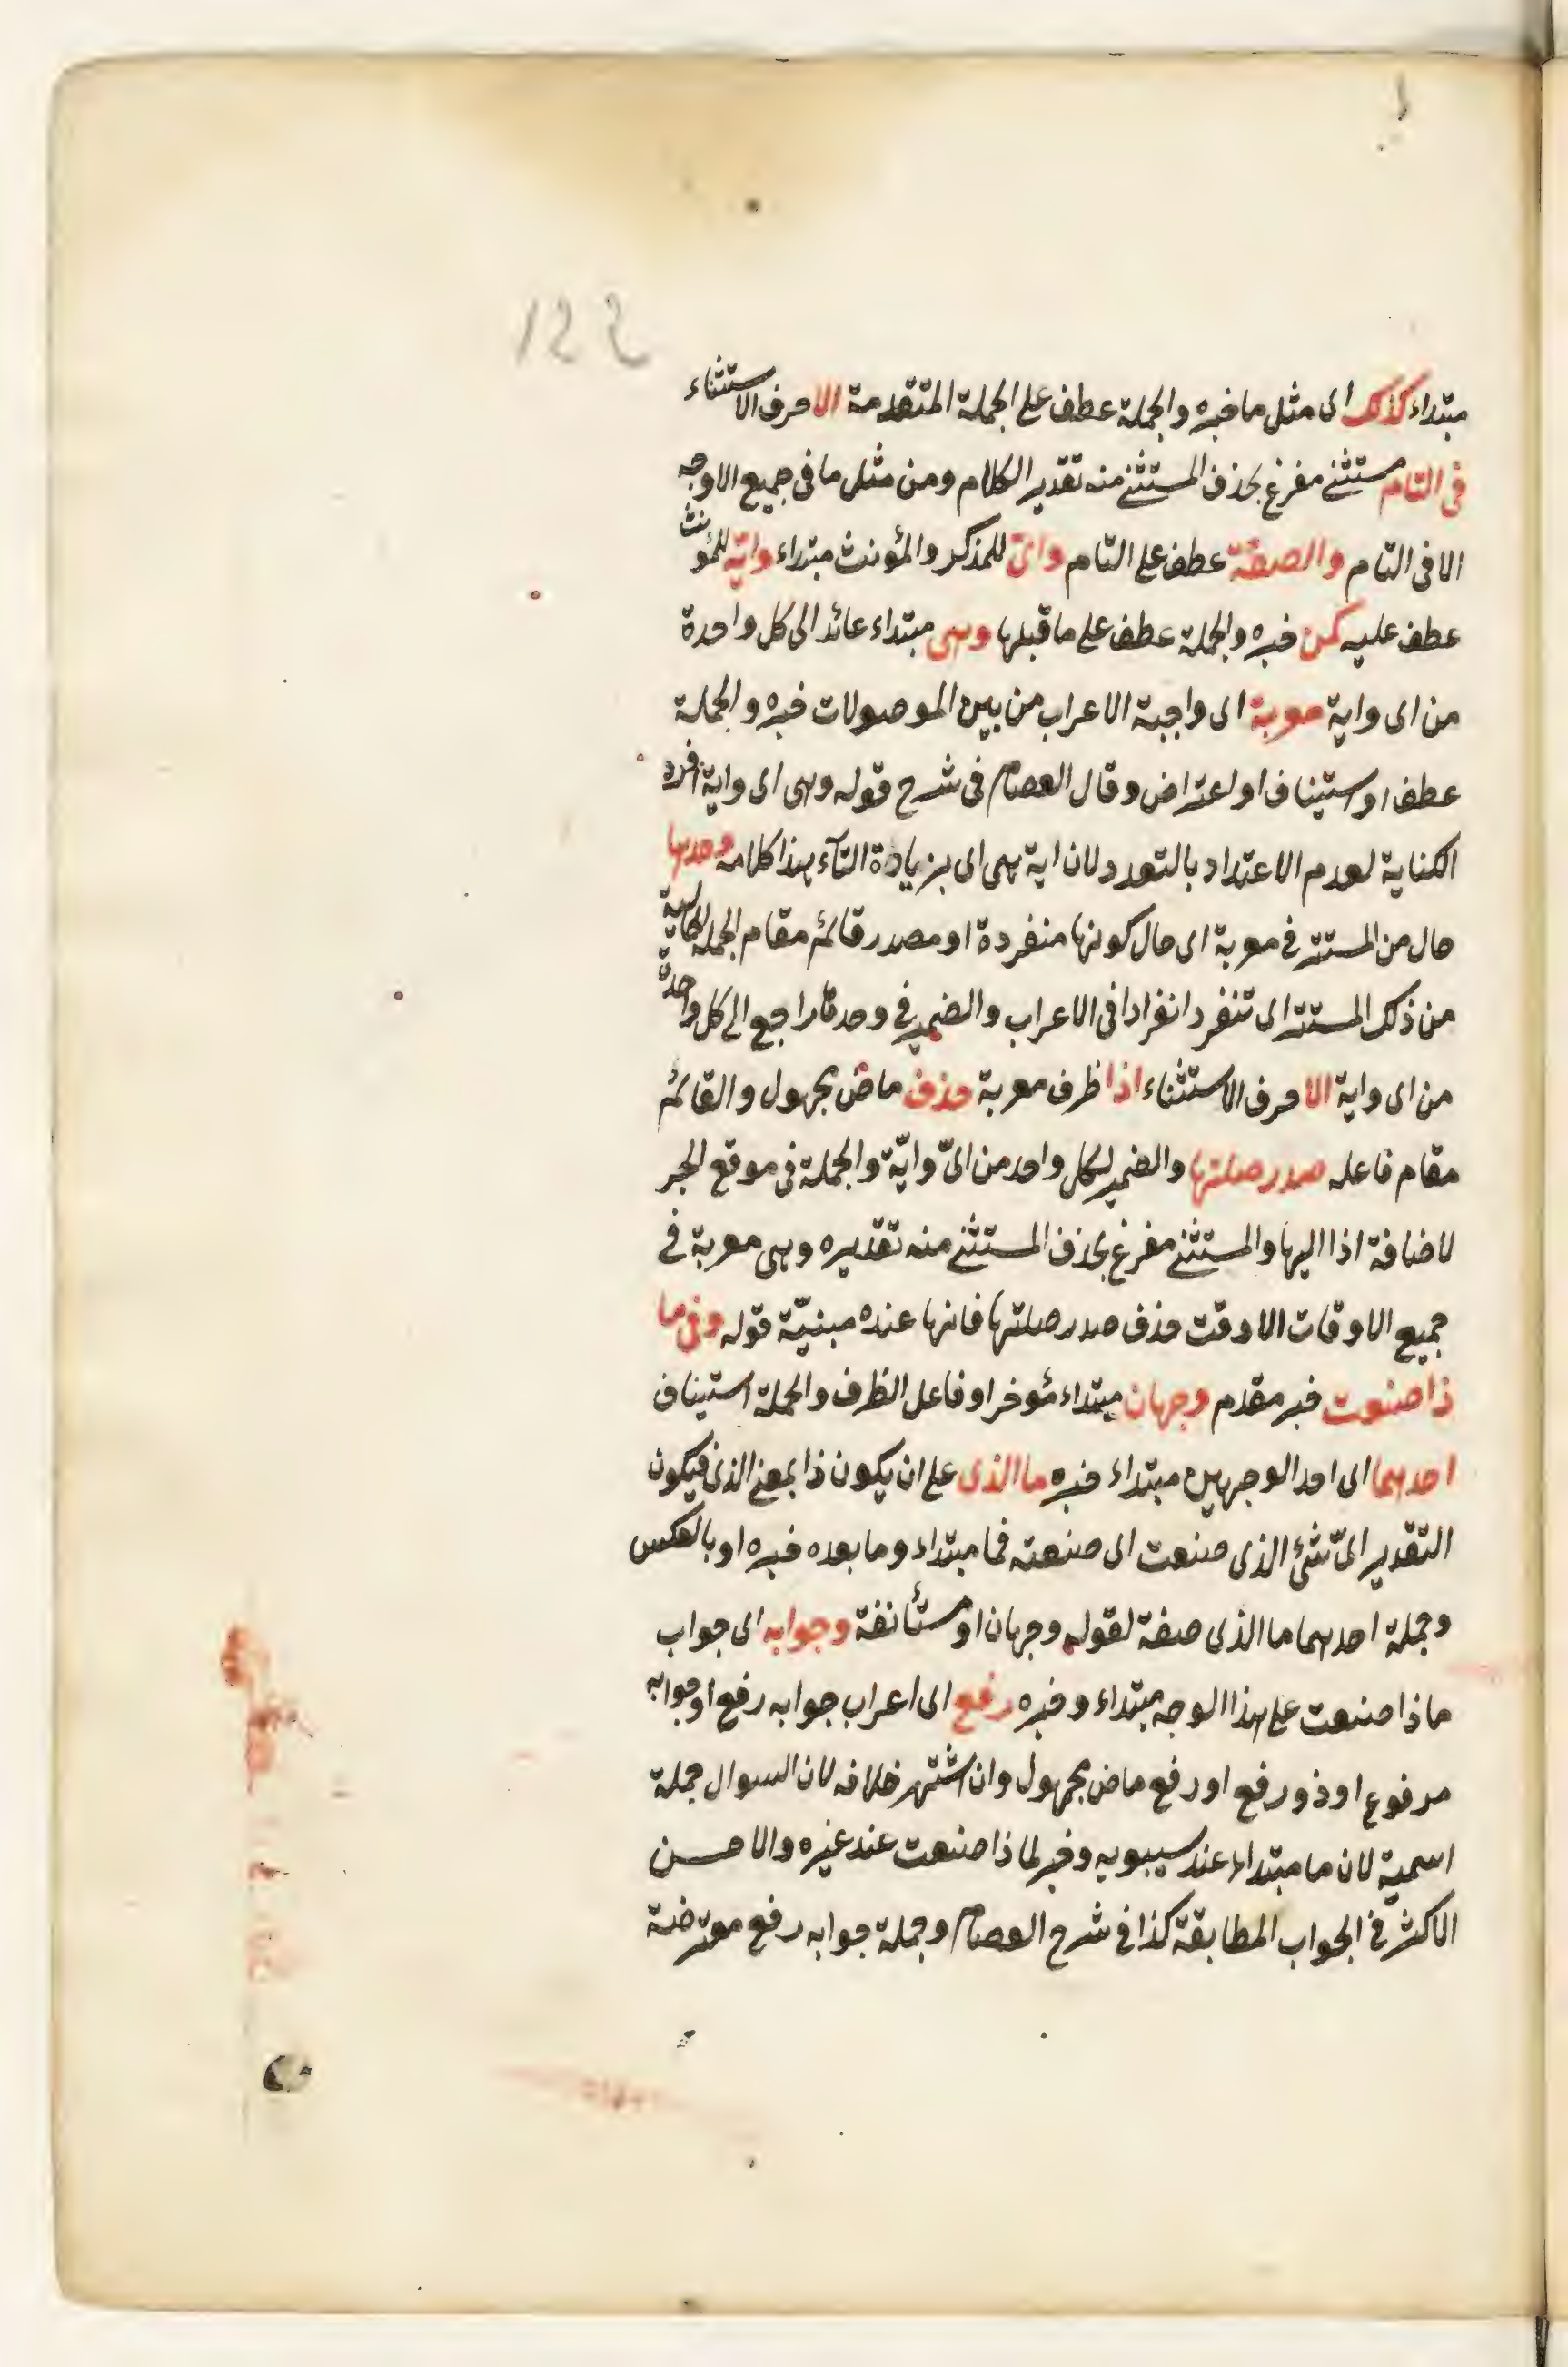 122
مبتداء كذلك اى مثل ما خبره والجملة عطف على الجملة المتقدمة الا حرف الاستثناء
فى التام مستثنى مفرغ بحذف المستثنى منه تقدير الكلام ومن مثل ما فى جميع الاوجه
الا فى التام والصفة عطف على التام واىّ للمذكر والمؤنث مبتداء وايّة للمؤنث
عطف عليه كمن خبره والجملة عطف على ما قبلها وهى مبتداء عائد الى كل واحدة
من اى واية معربة اى واجبة الاعراب من بين الموصولات خبره والجملة
عطف او استيناف او اعتراض وقال العصام فى شرح قوله وهى اى واية افرد
الكناية لعدم الاعتداد بالتعدد لان اية هى اى بزيادة التآء هذا كلامه وحدها
حال من المستتر فى معربة اى حال كونها منفردة او مصدر قائم مقام الجملة الحالية
من ذلك المستتر اى تنفرد انفرادا فى الاعراب والضمير فى وحدها راجع الى كل واحدة
من اى واية الا حرف الاستثناء اذا ظرف معربة حذف ماض مجهول والقائم
مقام فاعله صدر صلتها والضمير لكل واحد من اىّ وايّة والجملة فى موقع الجر
لاضافة اذا اليها والمستثنى مفرغ بحذف المستثنى منه تقديره وهى معربة فى
جميع الاوقات الا وقت حذف صدر صلتها فانها عنده مبنيّة قوله وفى ما
ذا صنعت خبر مقدم وجهان مبتداء مؤخر او فاعل الظرف والجملة استيناف
احدهما اى احد الوجهين مبتداء خبره ما الذى على ان يكون ذا بمعنى الذى فيكون
التقدير اىّ شئ الذى صنعت اى صنعته فما مبتداء وما بعده خبره او بالعكس
وجملة احدهما ما الذى صفة لقوله وجهان او مستأنفة وجوابه اى جواب
ماذا صنعت على هذا الوجه مبتداء وخبره رفع اى اعراب جوابه رفع او جوابه
مرفوع او ذو رفع او رفع ماض مجهول وان اشتهر خلافه لان السوال جملة
اسمية لان ما مبتداء عند سيبويه وخبر لما ذا صنعت عند غيره والاحسن
الاكثر فى الجواب المطابقة كذا فى شرح العصام وجملة جوابه رفع معترضة